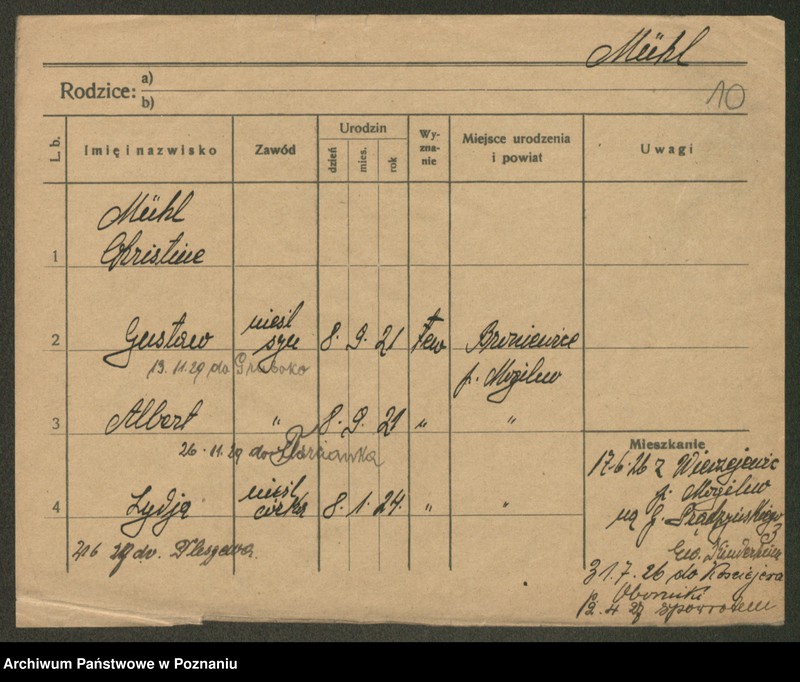 Mühl
Rodzice: a)
b)
10
L. b.
Imię i nazwisko
Zawód
Urodzin
dzień
mies.
rok
Wy-
zna-
nie
Miejsce urodzenia
i powiat
Uwagi
Mühl
1 Christine
nieśl
2 Gustaw syn 8. 9. 21 ew Broniewice
13.11.29 do
p. Mogilno
3 Albert " 8. 9. 21 " "
26.11.29 do
nieśl
4 Lydja córka 8. 1. 24. " "
29 do. Pleszewa.
Mieszkanie
17.6.26 z
p. Mogilno
na p. Prądzyńskiego 3
Ew. Kinderheim
31.7.26 do
Oborniki
12.4.27 zpowrotem
Archiwum Państwowe w Poznaniu